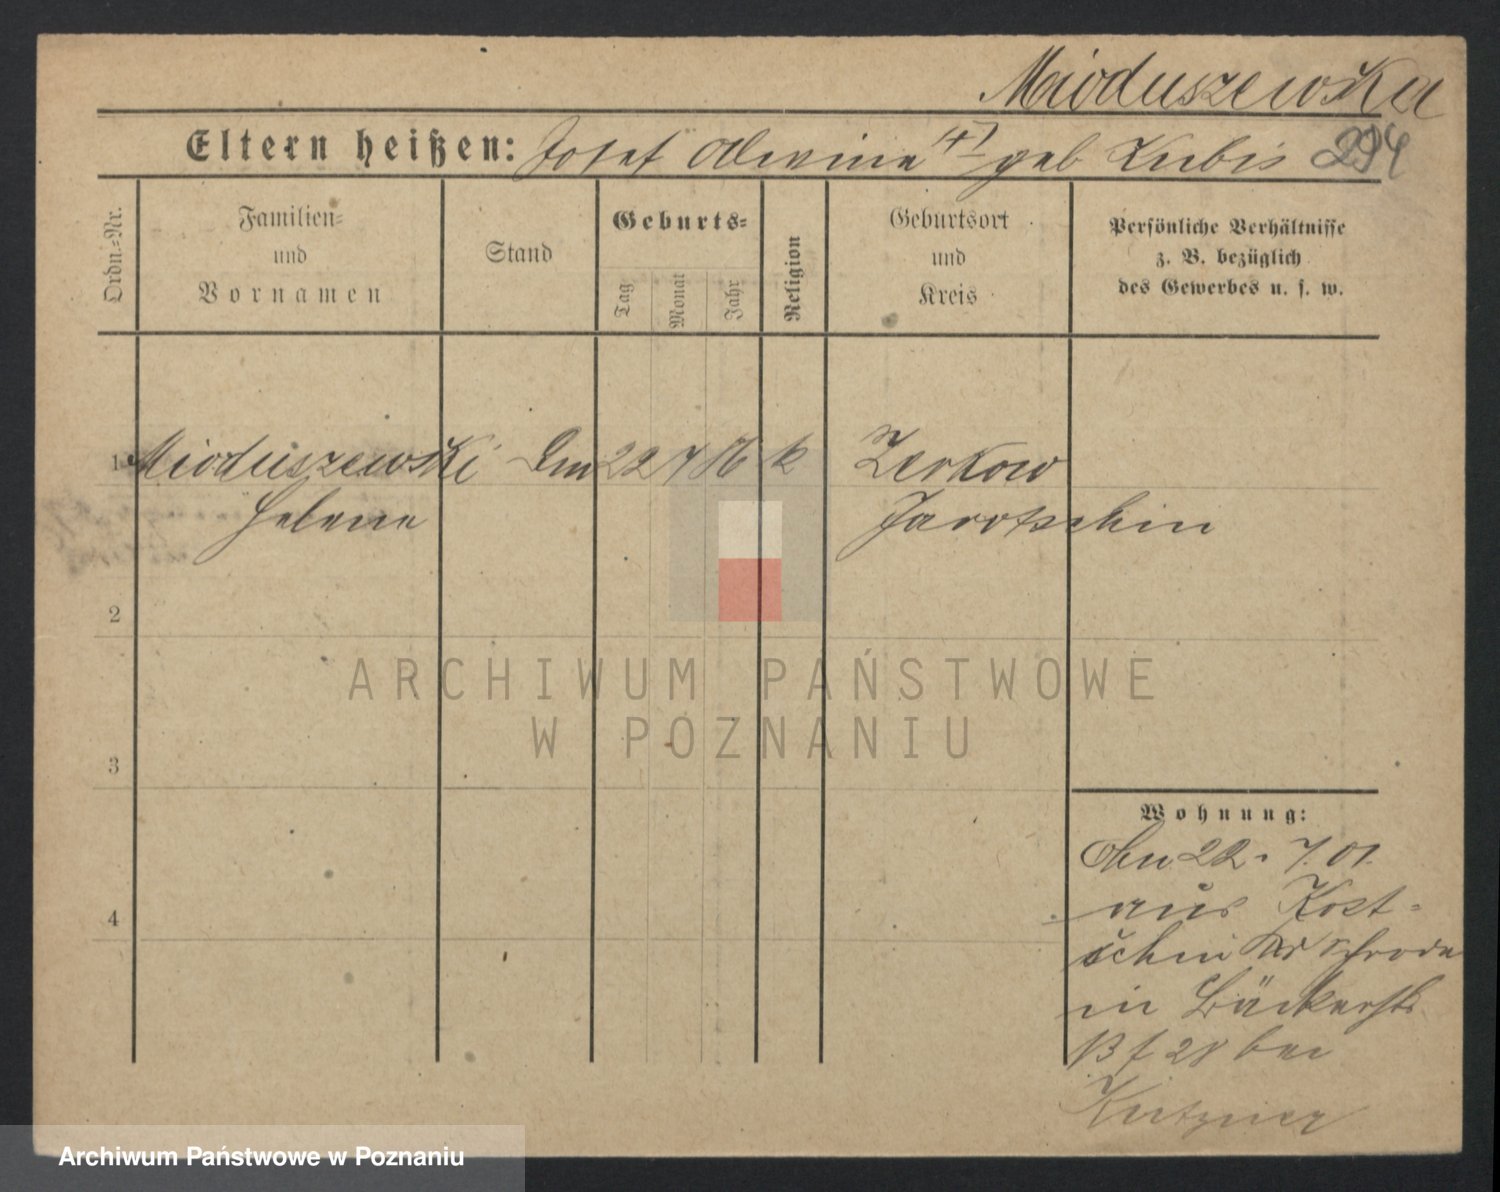 Mioduszewska
Eltern heißen: Josef (+) geb Kubis 294
Ordn.=Nr.
Familien=
und
Vornamen
Stand
Geburts=
Tag
Monat
Jahr
Religion
Geburtsort
und
Kreis
Persönliche Verhältnisse
z. B. bezüglich
des Gewerbes u. s. w.
1 Mioduszewski 22 7 k Zerkow
Helene Jarotschin
2
3
4
Wohnung:
22. 7. 01.
aus Kost=
schin Kr Schroda
in Bäckerstr
28 bei
ARCHIWUM PAŃSTWOWE
W POZNANIU
Archiwum Państwowe w Poznaniu